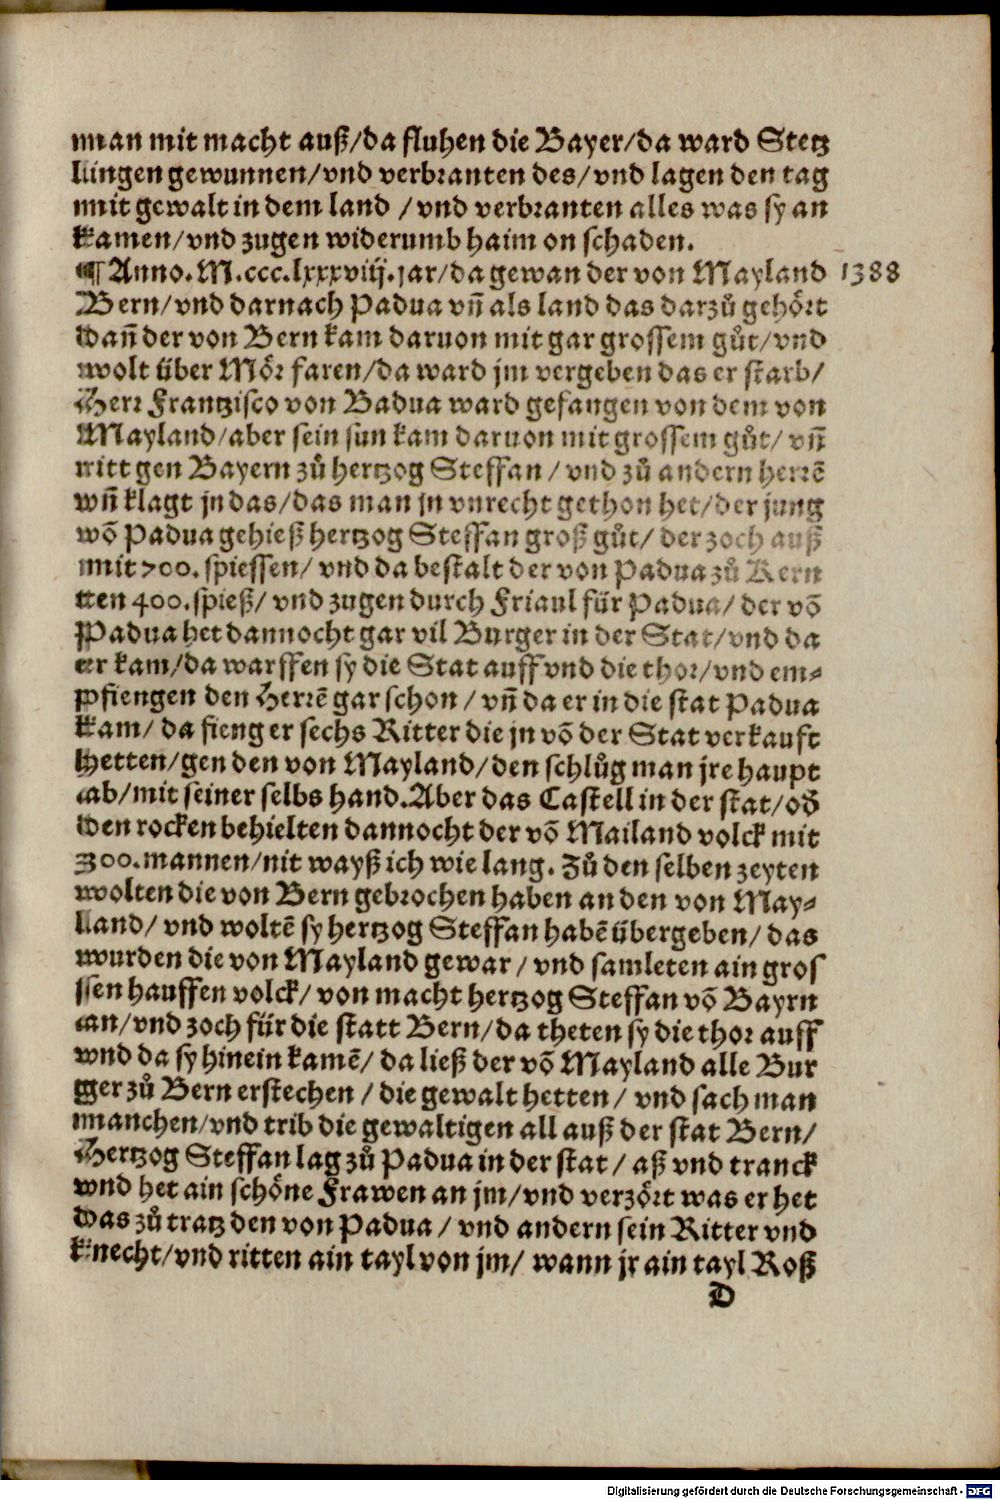 man mit macht auß/da fluhen die Bayer/da ward Stetz
lingen gewunnen/vnd verbranten des/vnd lagen den tag
mit gewalt in dem land /vnd verbranten alles was sy an
kamen/vnd zugen widerumb haim on schaden.
¶ Anno.M.ccc.lxxxviij.jar/da gewan der von Mayland 1388
Bern/vnd darnach Padua vñ als land das darzů gehört
wañ der von Bern kam daruon mit gar grossem gůt/vnd
wolt über Mör faren/da ward jm vergeben das er starb/
Herr Frantzisco von Badua ward gefangen von dem von
Mayland/aber sein sun kam daruon mit grossem gůt/ vñ
ritt gen Bayern zů hertzog Steffan / vnd zů andern herrē
vñ klagt jn das/das man jn vnrecht gethon het/der jung
vō Padua gehieß hertzog Steffan groß gůt/ der zoch auß
mit 700. spiessen/ vnd da bestalt der von Padua zů Kern
ten 400. spieß/ vnd zugen durch Friaul für Padua/ der vō
Padua het dannocht gar vil Burger in der Stat/vnd da
er kam/da warffen sy die Stat auff vnd die thor/vnd em⸗
pfiengen den Herrē gar schon / vñ da er in die stat Padua
kam/ da fieng er sechs Ritter die jn vō der Stat verkauft
hetten/gen den von Mayland/den schlůg man jre haupt
ab/mit seiner selbs hand.Aber das Castell in der stat/od
den rocken behielten dannocht der vō Mailand volck mit
300.mannen/nit wayß ich wie lang. Zů den selben zeyten
wolten die von Bern gebrochen haben an den von May⸗
land/ vnd woltē sy hertzog Steffan habē übergeben/ das
wurden die von Mayland gewar / vnd samleten ain gros
sen hauffen volck/ von macht hertzog Steffan vō Bayrn
an/vnd zoch für die statt Bern/da theten sy die thor auff
vnd da sy hinein kamē/ da ließ der vō Mayland alle Bur
ger zů Bern erstechen / die gewalt hetten/ vnd sach man
manchen/vnd trib die gewaltigen all auß der stat Bern/
Hertzog Steffan lag zů Padua in der stat / aß vnd tranck
vnd het ain schöne Frawen an jm/vnd verzört was er het
das zů tratz den von Padua / vnd andern sein Ritter vnd
knecht/vnd ritten ain tayl von jm/ wann jr ain tayl Roß
D
Digitalisierung gefördert durch die Deutsche Forschungsgemeinschaft - DFG